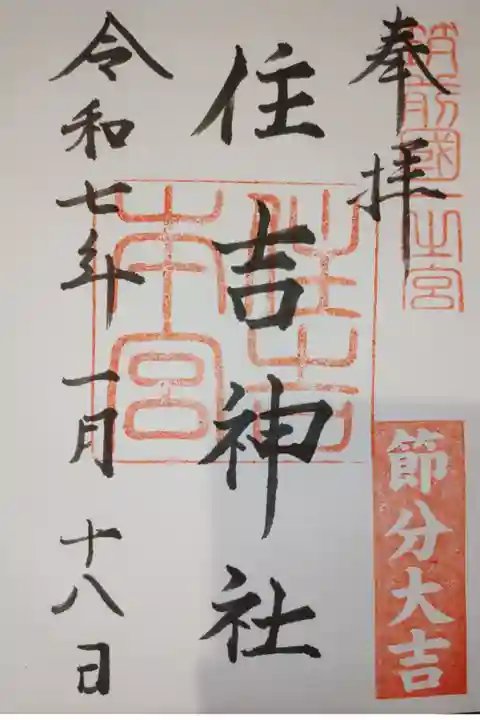 奉拝
筑前國一之宮
節分大吉
住吉神社
住吉本宮
令和七年一月十八日